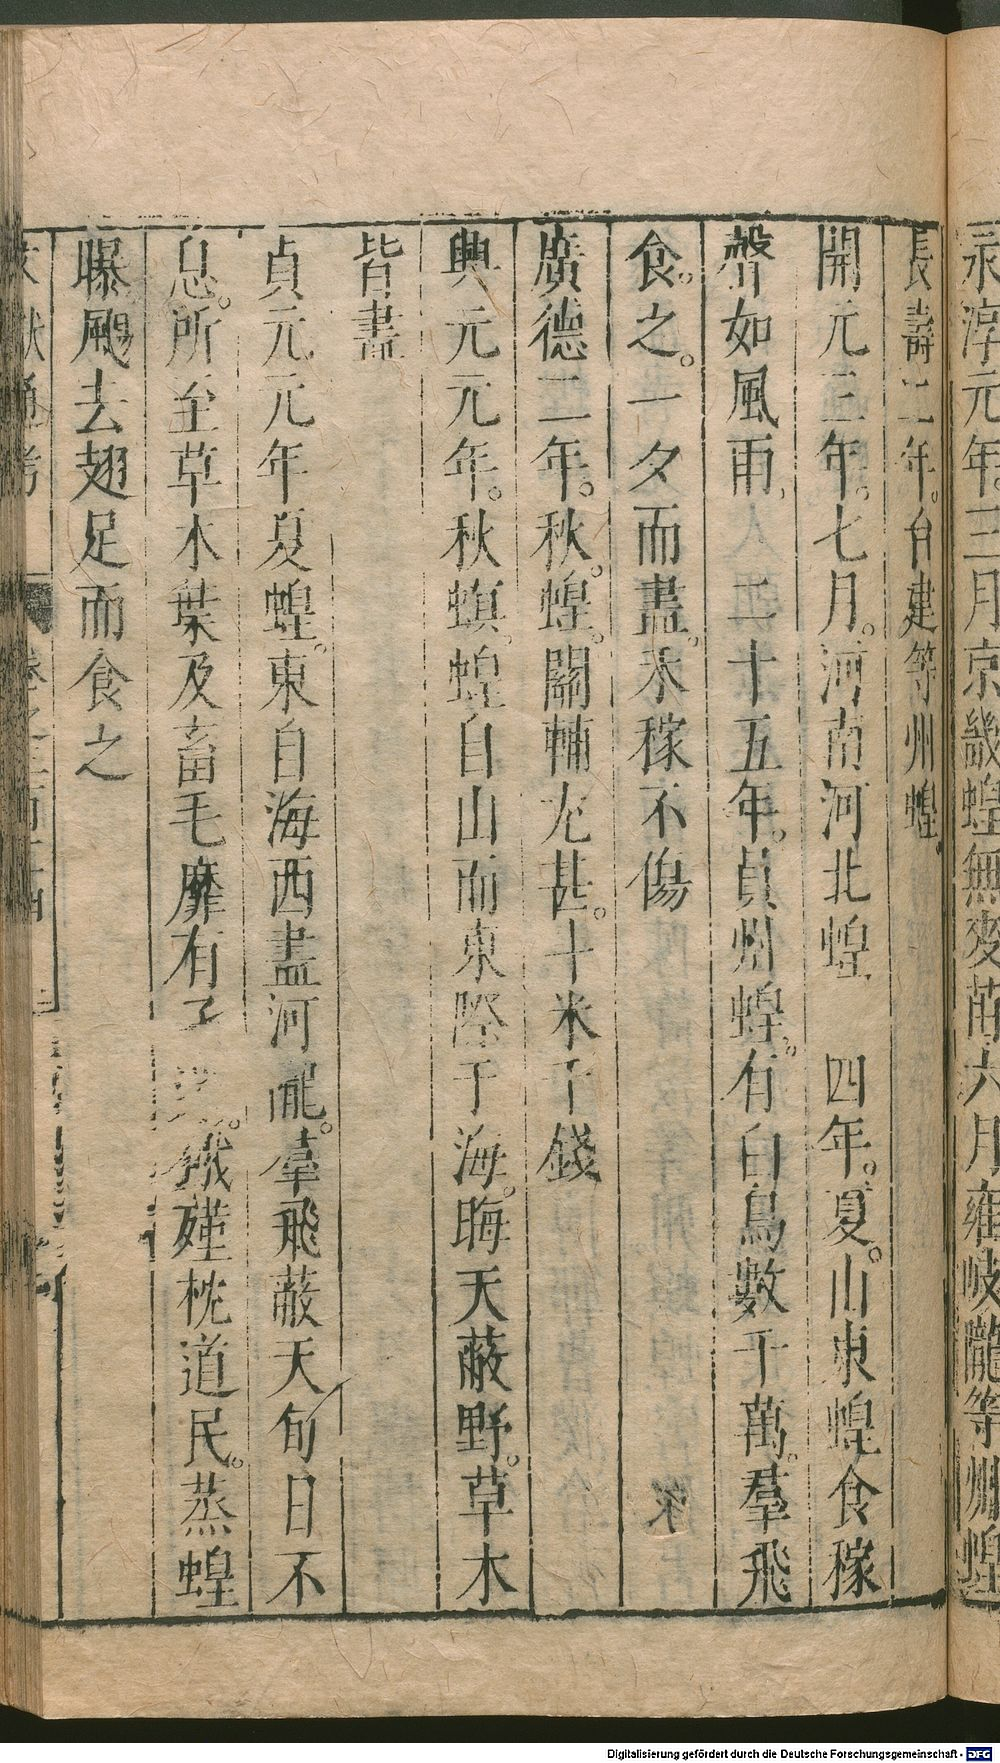 永淳元年。三月京畿蝗無麥苗六月雍岐隴等州蝗
長壽二年。台建等州蝗。
開元三年。七月。河南河北蝗 四年。夏。山東蝗食稼
聲如風雨 二十五年。貝州蝗。有白鳥數千萬。羣飛
食。之。一夕而盡。禾稼不傷
廣德二年。秋。蝗。關輔尤甚。斗米千錢
興元元年。秋螟。蝗自山而東際于海。晦天蔽野。草木
皆盡
貞元元年夏蝗。東自海西盡河隴。羣飛蔽天旬日不
息。所至草木葉及畜毛靡有孑遺。餓殣枕道民。蒸蝗
曝颺去翅足而食之
文獻通考
Digitalisierung gefördert durch die Deutsche Forschungsgemeinschaft - DFG